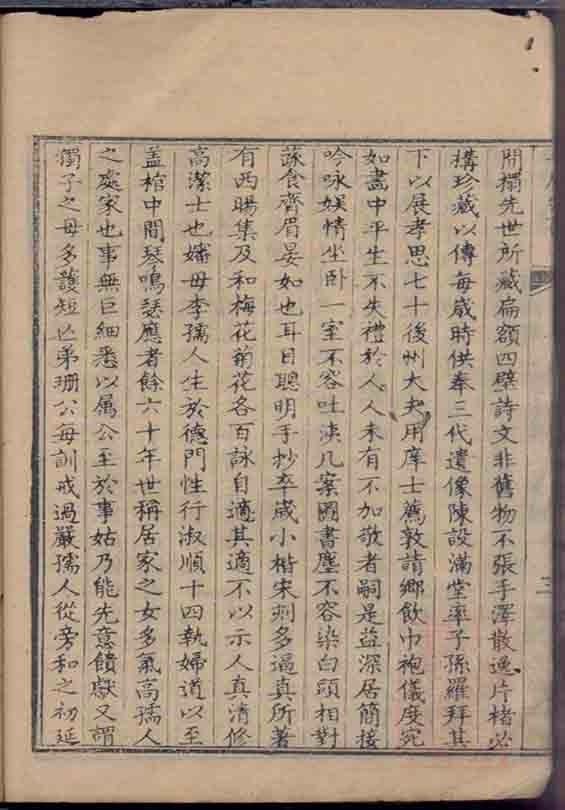 間獨先世所藏扁額四壁詩文非舊物不張手澤散逸片楮必
構珍藏以傳每歲時供奉三代遺像陳設滿堂率子孫羅拜其
下以展孝思七十後州大夫用庠士薦敦請鄉飲巾袍儀度宛
如畫中平生不失禮於人人未有不加敬者嗣是益深居簡接
吟咏娱情坐卧一室不容吐涕几案圖書塵不容染白頭相對
蔬食齊眉晏如也耳目聰明手抄卒歲小楷宋刻多逼真所著
有西暘集及和梅花菊花各百詠自適其適不以示人真清修
高潔士也嬸母李孺人生於德門性行淑順十四執婦道以至
盖棺中間琴鳴瑟應者餘六十年世稱居家之女多氣高孺人
之處家也事無巨細悉以属公至於事姑乃能先意饋獻又謂
獨子之母多護短亡弟珊公每訓戒過嚴孺人從旁和之初延
三